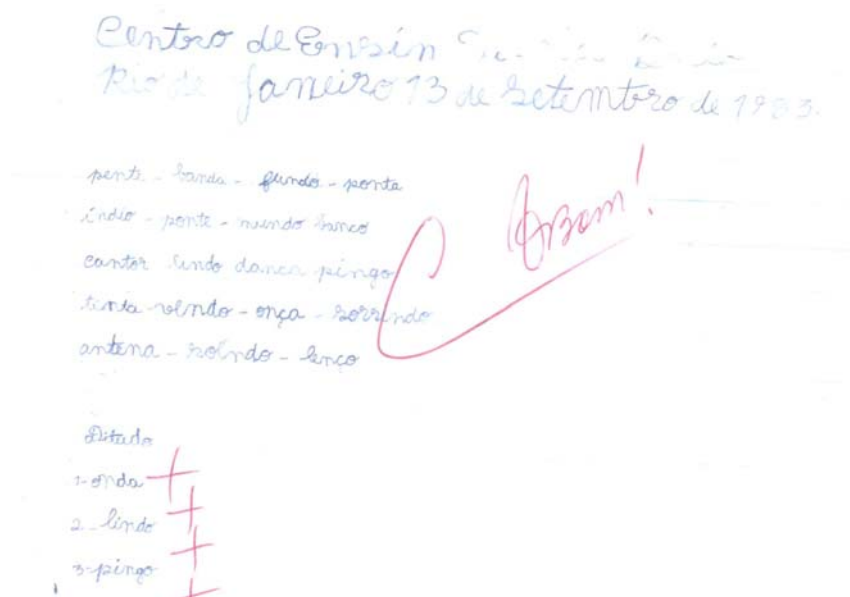 Centro de Ensin
Rio de Janeiro 13 de setembro de 1983.
pente - banda - fundo - ponta
índio - ponte - mundo banco
cantor lindo danca pingo
tenta vendo - onça - sorrindo
antena - roindo - lenço
Bom!
Ditado
1- onda
2 - lindo
3 - pingo